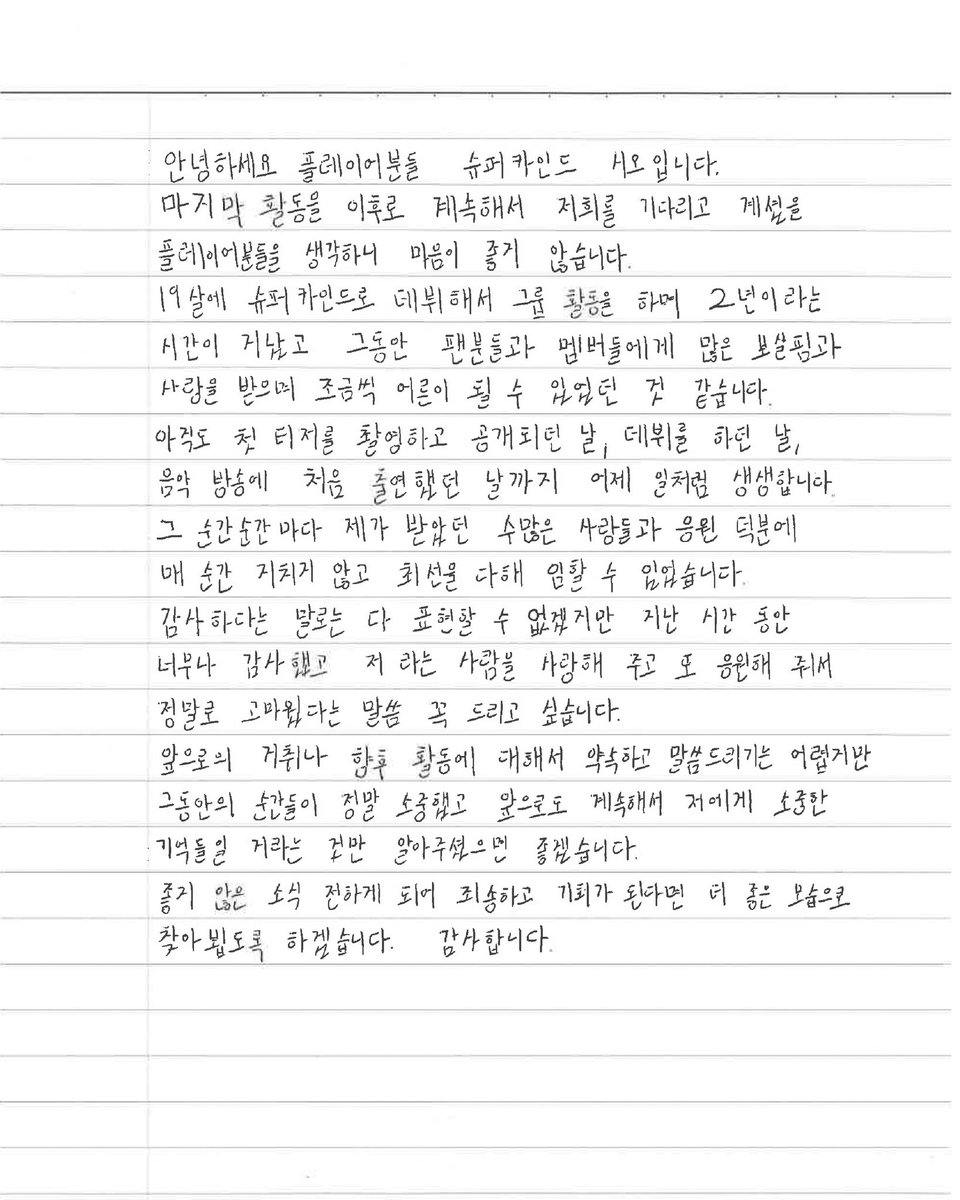 안녕하세요 플레이어분들 슈퍼카인드 시오입니다.
마지막 활동을 이후로 계속해서 저희를 기다리고 계셨을
플레이어분들을 생각하니 마음이 좋지 않습니다.
19살에 슈퍼카인드로 데뷔해서 그룹 활동을 하며 2년이라는
시간이 지났고 그동안 팬분들과 멤버들에게 많은 보살핌과
사랑을 받으며 조금씩 어른이 될 수 있었던 것 같습니다.
아직도 첫 티저를 촬영하고 공개되던 날, 데뷔를 하던 날,
음악 방송에 처음 출연했던 날까지 어제 일처럼 생생합니다.
그 순간순간마다 제가 받았던 수많은 사랑들과 응원 덕분에
매 순간 지치지 않고 최선을 다해 임할 수 있었습니다.
감사하다는 말로는 다 표현할 수 없겠지만 지난 시간 동안
너무나 감사했고 저 라는 사람을 사랑해 주고 또 응원해 줘서
정말로 고마웠다는 말씀 꼭 드리고 싶습니다.
앞으로의 거취나 향후 활동에 대해서 약속하고 말씀드리기는 어렵지만
그동안의 순간들이 정말 소중했고 앞으로도 계속해서 저에게 소중한
기억들일 거라는 것만 알아주셨으면 좋겠습니다.
좋지 않은 소식 전하게 되어 죄송하고 기회가 된다면 더 좋은 모습으로
찾아뵙도록 하겠습니다. 감사합니다.